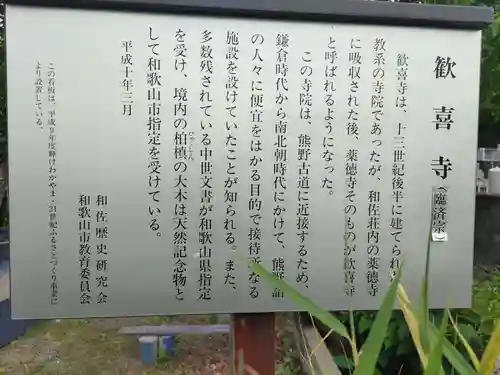 歓喜寺(臨済宗)
歓喜寺は、十三世紀後半に建てられ
教系の寺院であったが、和佐荘内の薬徳寺
に吸収された後、薬徳寺そのものが歓喜寺
と呼ばれるようになった。
この寺院は、熊野古道に近接するため、
鎌倉時代から南北朝時代にかけて、熊野
の人々に便宜をはかる目的で接待所なる
施設を設けていたことが知られる。また、
多数残されている中世文書が和歌山県指定
を受け、境内の柏槙の大木は天然記念物と
して和歌山市指定を受けている。
平成十年三月
和佐歴史研究会
和歌山市教育委員会
この看板は、平成9年度輝けわかやま・21世紀ふるさとづくり事業に
より設置している。